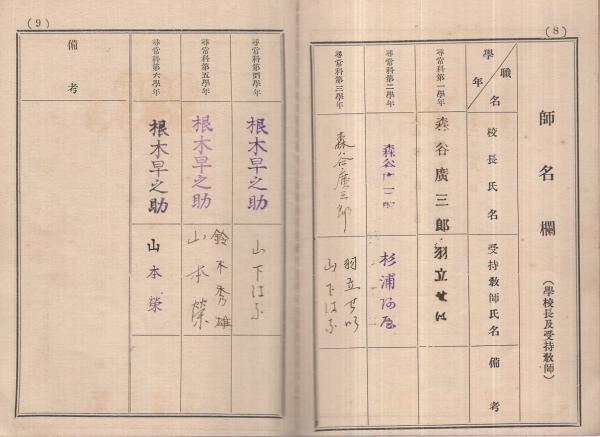 (8)
師名欄
(學校長及受持教師)
職名
學年
校長氏名
受持教師氏名
備考
尋常科第一學年
森谷廣三郎
羽立せい
尋常科第二學年
森谷廣三郎
杉浦
尋常科第三學年
森谷廣三郎
羽立せい
山下はな
(9)
尋常科第四學年
根木早之助
山下はな
尋常科第五學年
根木早之助
鈴木秀雄
山本榮
尋常科第六學年
根木早之助
山本榮
備考